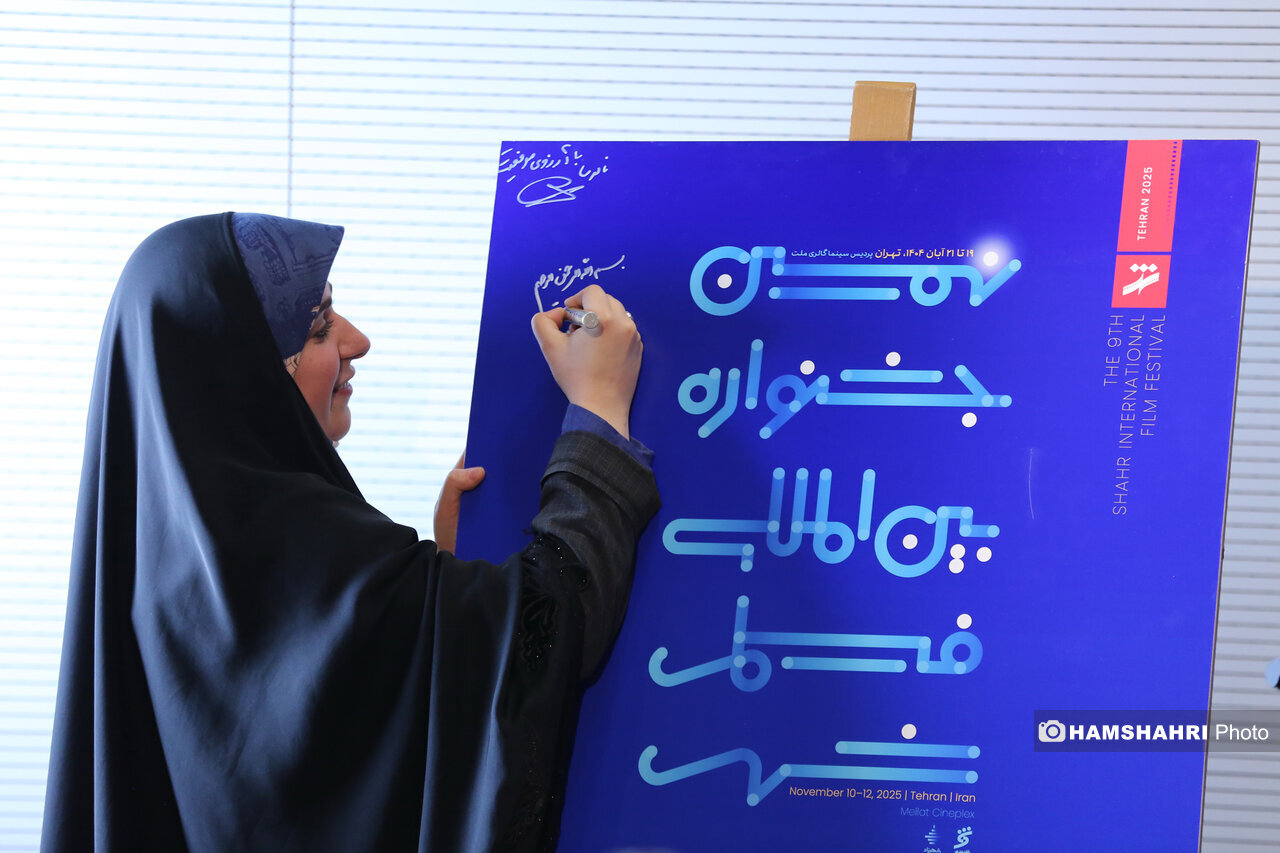 با آرزوی موفقیت
بسم الله الرحمن الرحیم
۱۹ تا ۲۱ آبان ۱۴۰۴، تهران پردیس سینما گالری ملت
نهمین
جشنواره
بین‌المللی
فیلم
شهر
November 10–12, 2025 | Tehran | Iran
Mellat Cineplex
TEHRAN 2025
شهر
THE 9TH
SHAHR INTERNATIONAL
FILM FESTIVAL
HAMSHAHRI Photo